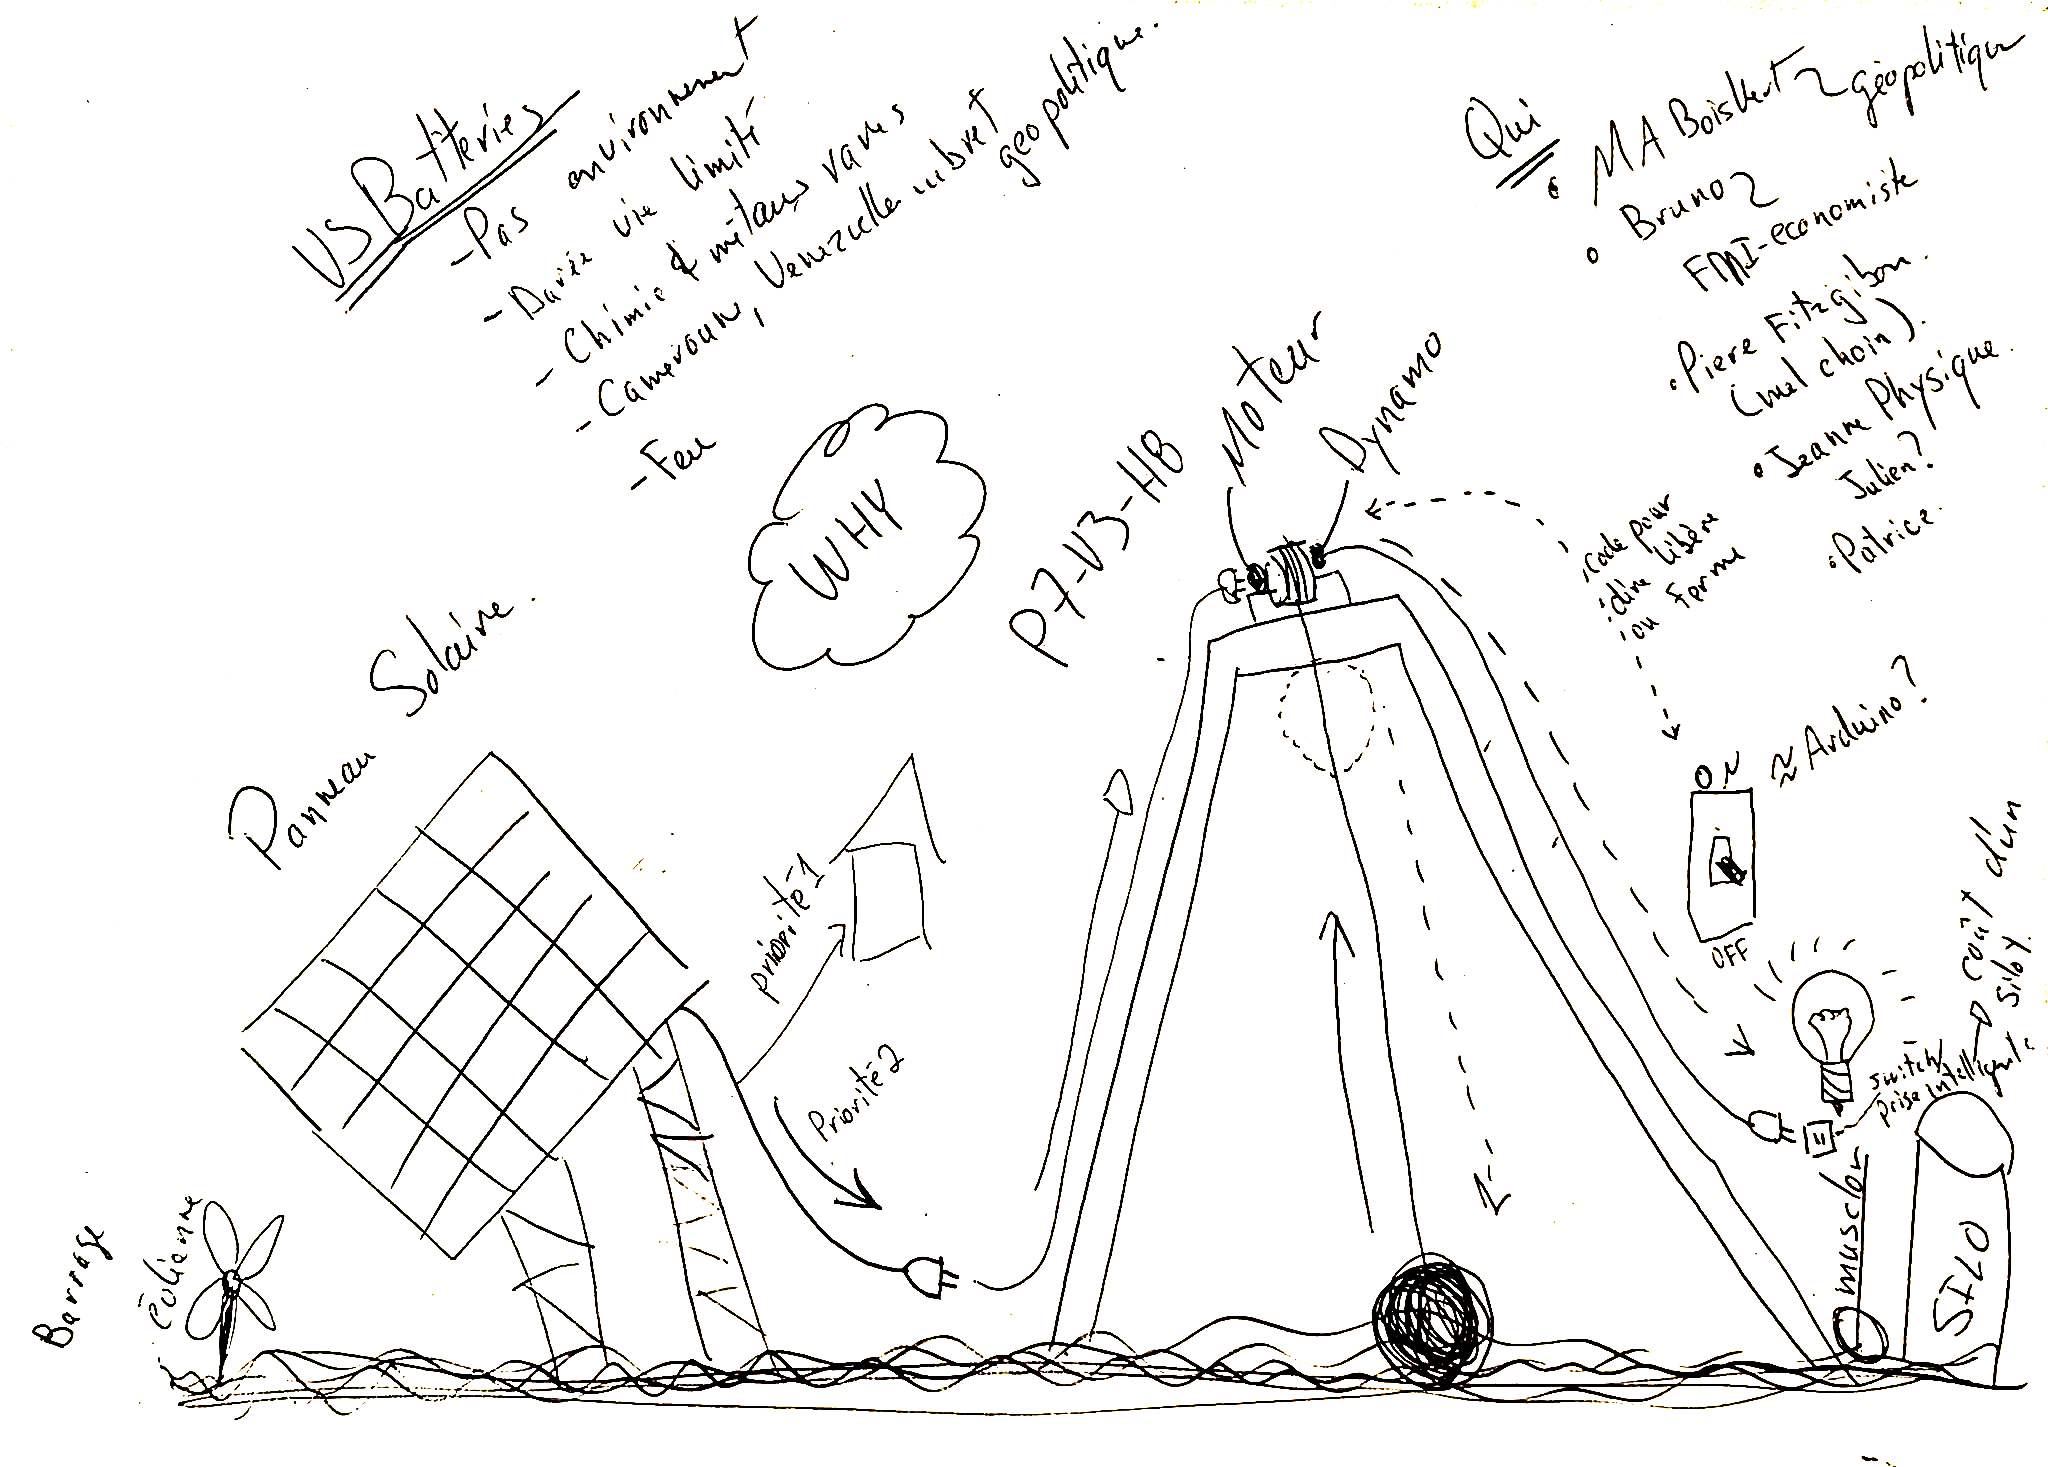 VS Batteries
-Pas environnement
-Durée vie limité
-Chimie & métaux rares
-Cameroune, Venezuelle ...bref
géopolitique.
-Feu
Qui
• MA Boisvert ~ géopolitique
• Bruno ~
FMI-economiste
• Piere Fitzgibon.
(mel choin)
• Jeanne Physique.
Julien?
• Patrice.
WHY
P7-V3-HB
Moteur
Dynamo
code pour
dire libère
ou ferme
Panneau Solaire.
priorité 1
Priorité 2
ON
≈ Arduino?
OFF
coût d'un
silo?
switch/
prise intelligente
Barrage
éolienne
musclor
SILO